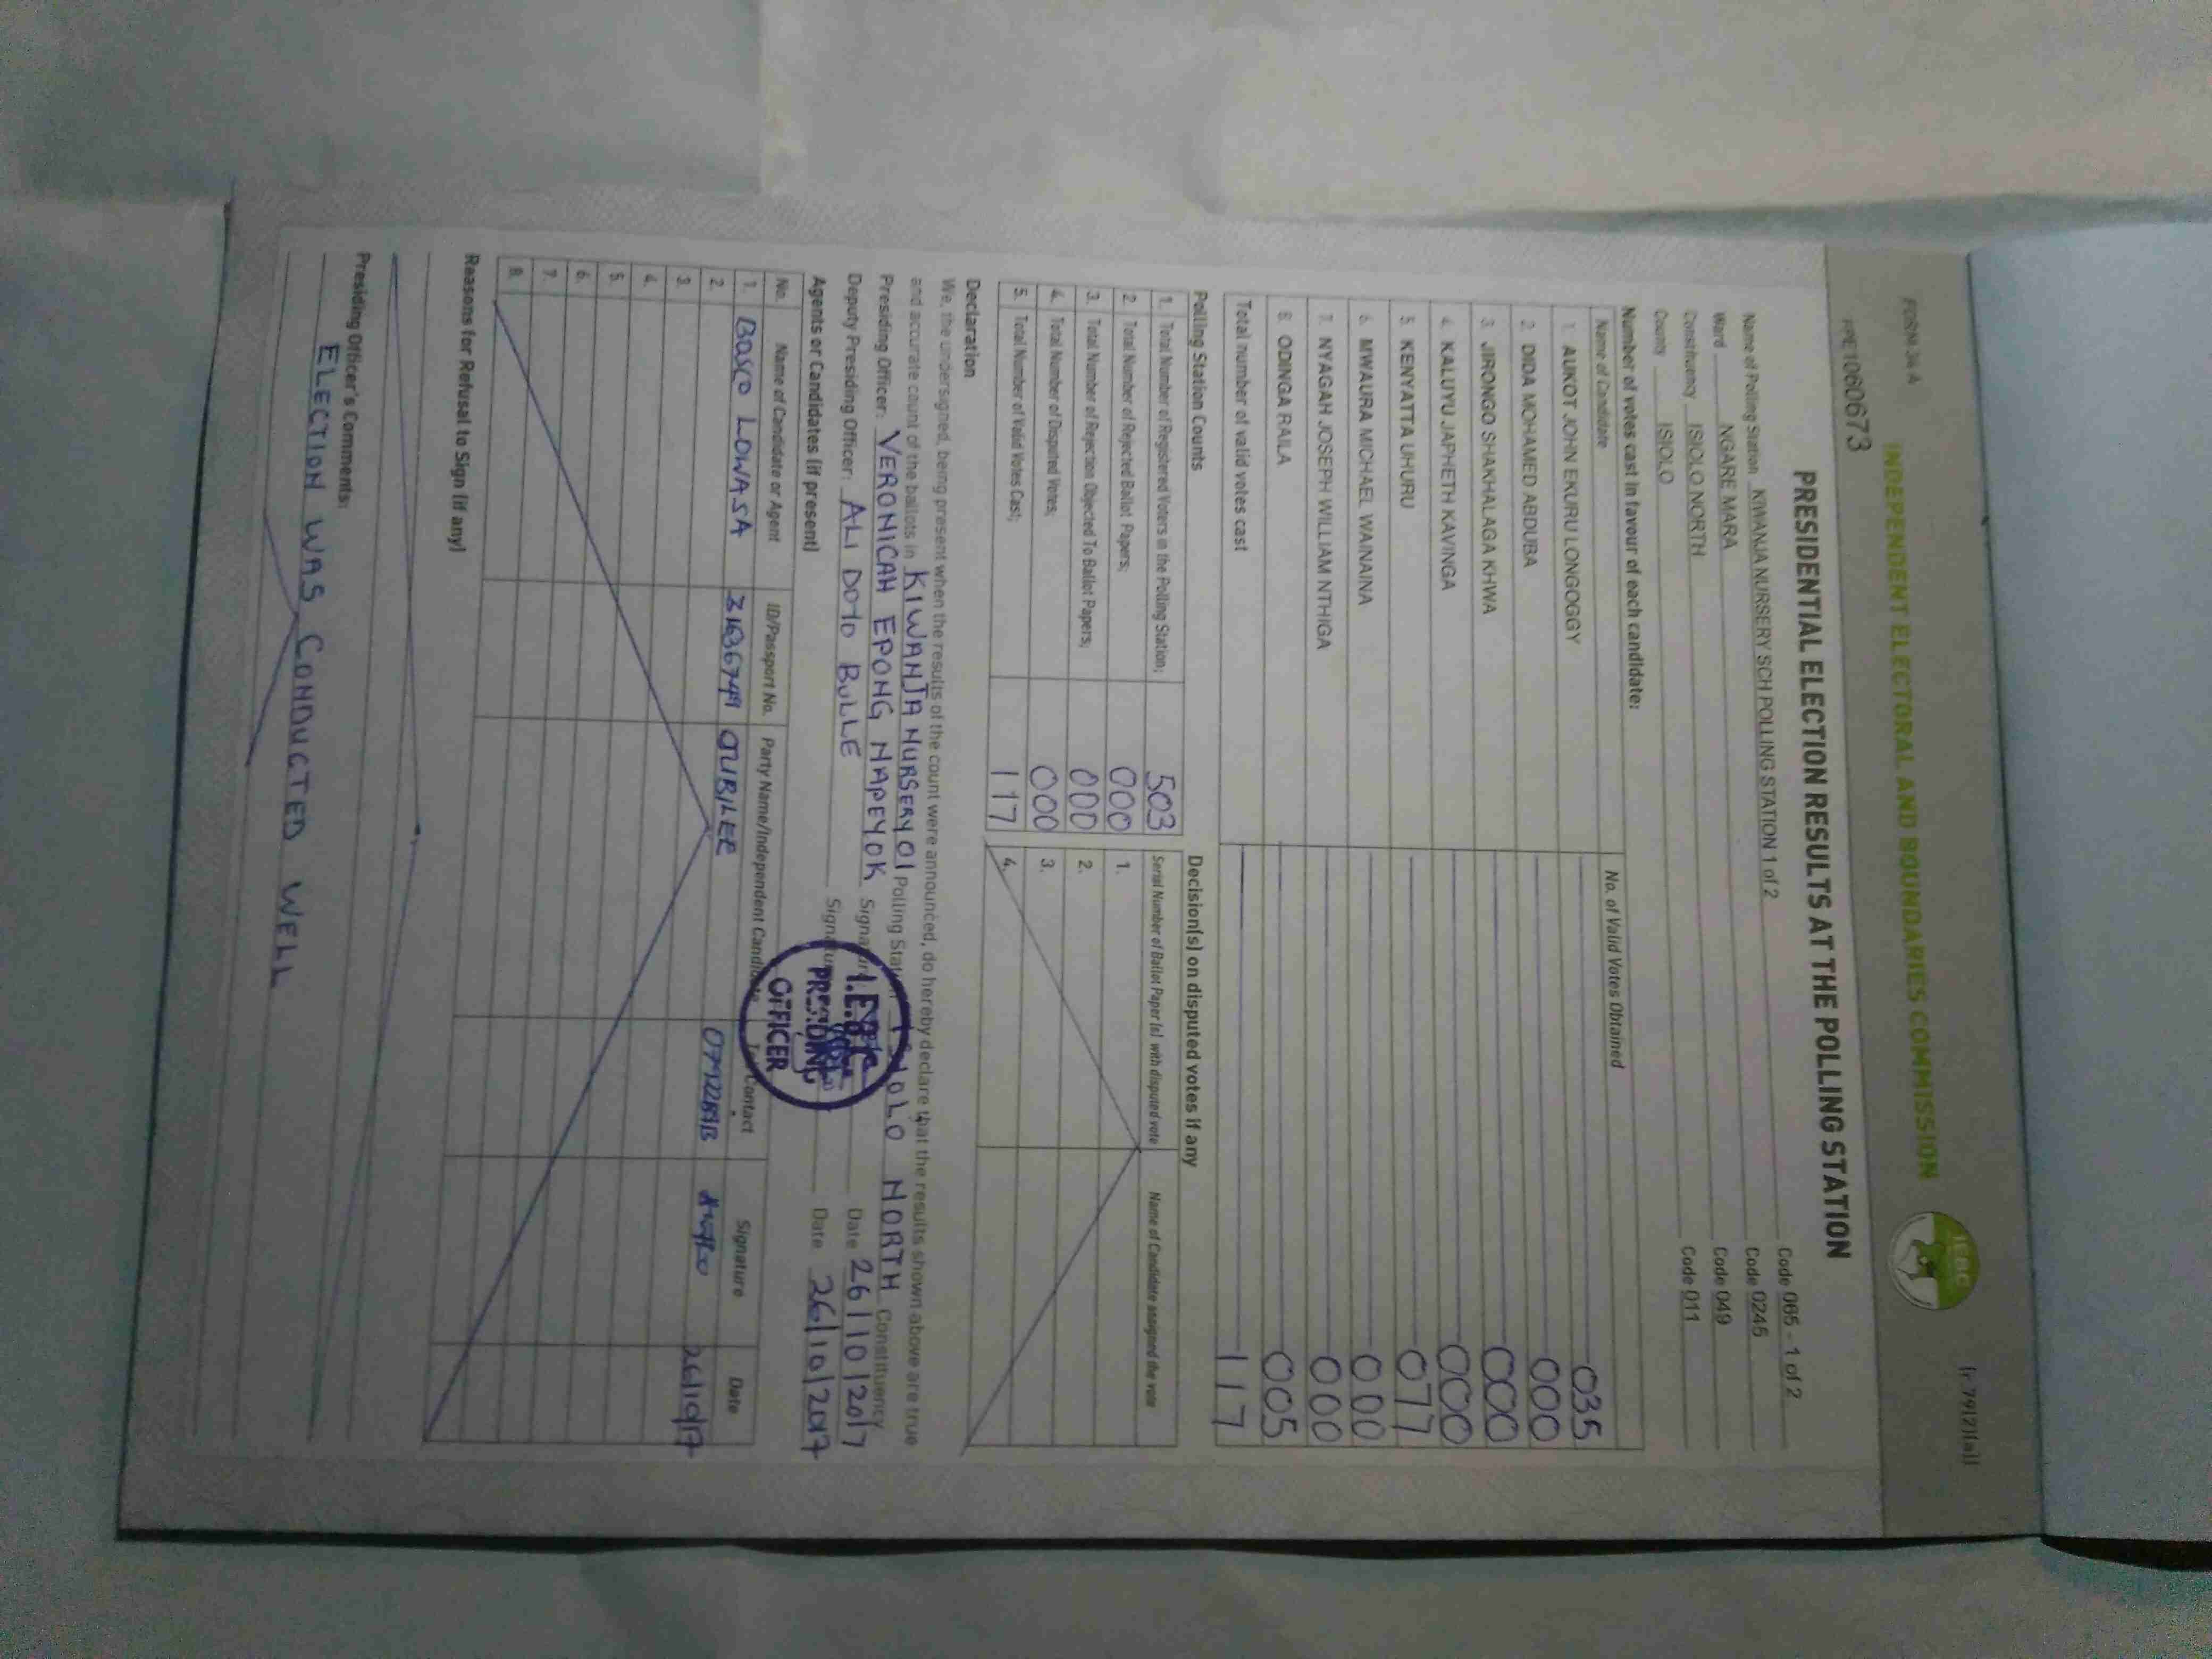 FORM 34 A
(r 79(2)(a))
INDEPENDENT ELECTORAL AND BOUNDARIES COMMISSION
IEBC
PPE1060673
PRESIDENTIAL ELECTION RESULTS AT THE POLLING STATION
Name of Polling Station KIWANJA NURSERY SCH POLLING STATION 1 of 2 Code 065 - 1 of 2
Ward NGARE MARA Code 0245
Constituency ISIOLO NORTH Code 049
County ISIOLO Code 011
Number of votes cast in favour of each candidate:
Name of Candidate No. of Valid Votes Obtained
1. AUKOT JOHN EKURU LONGOGGY 035
2. DIDA MOHAMED ABDUBA 000
3. JIRONGO SHAKHALAGA KHWA 000
4. KALUYU JAPHETH KAVINGA 000
5. KENYATTA UHURU 077
6. MWAURA MICHAEL WAINAINA 000
7. NYAGAH JOSEPH WILLIAM NTHIGA 000
8. ODINGA RAILA 005
Total number of valid votes cast 117
Polling Station Counts Decision(s) on disputed votes if any
1. Total Number of Registered Voters in the Polling Station; 503 Serial Number of Ballot Paper (s) with disputed vote Name of Candidate assigned the vote
2. Total Number of Rejected Ballot Papers; 000 1.
3. Total Number of Rejection Objected To Ballot Papers; 000 2.
4. Total Number of Disputed Votes; 000 3.
5. Total Number of Valid Votes Cast; 117 4.
Declaration
We, the undersigned, being present when the results of the count were announced, do hereby declare that the results shown above are true
and accurate count of the ballots in KIWANJA NURSERY 01 Polling Station ISIOLO NORTH Constituency
Presiding Officer: VERONICAH EPONG NAPEYOK Signature Date 26/10/2017
Deputy Presiding Officer: ALI DOTO BULLE Signature Date 26/10/2017
I.E.B.C
PRESIDING
OFFICER
Agents or Candidates (if present)
No. Name of Candidate or Agent ID/Passport No. Party Name/Independent Candidate Tel. Contact Signature Date
1. BOSCO LOWASA JUBILEE 26/10/17
2.
3.
4.
5.
6.
7.
8.
Reasons for Refusal to Sign (if any)
Presiding Officer's Comments:
ELECTION WAS CONDUCTED WELL